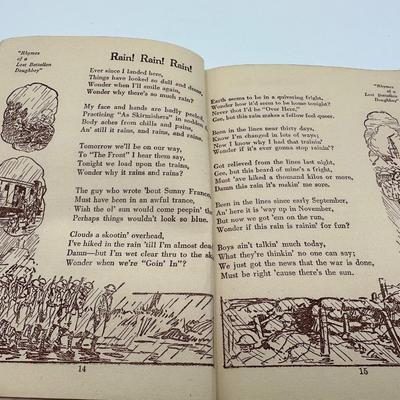 "Rhymes
of a
Lost Battalion
Doughboy"
Rain! Rain! Rain!
Ever since I landed here,
Things have looked so dull and drear,
Wonder when I'll smile again,
Wonder why there's so much rain?
My face and hands are badly peeled,
Practicing "As Skirmishers" in sodden
Body aches from chills and pains,
An' still it rains, and rains, and rains.
Tomorrow we'll be on our way,
To "The Front" I hear them say,
Tonight we load upon the trains,
Wonder why it rains and rains?
The guy who wrote 'bout Sunny France,
Must have been in an awful trance,
Wish the ol' sun would come peepin'
Perhaps things wouldn't look so blue.
Clouds a skootin' overhead,
I've hiked in the rain 'till I'm almost dead,
Damn—but I'm wet clear thru to the
Wonder when we're "Goin' In"?
14
Earth seems to be in a quivering fright,
Wonder how it'd seem to be home tonight?
Never thot I'd be "Over Here,"
Gee, but this rain makes a fellow feel queer.
Been in the lines near thirty days,
Know I'm changed in lots o' ways,
Now I know why I had that trainin'
Wonder if it's ever gonna stop rainin'?
Got relieved from the lines last night,
Gee, but this beard of mine's a fright,
Must 'ave hiked a thousand kilos or more,
Damn this rain it's makin' me sore.
Been in the lines since early September,
An' here it's way up in November,
But now we got 'em on the run,
Wonder if this rain is rainin' for fun?
Boys ain't talkin' much today,
What they're thinkin' no one can say;
We just got the news that the war is done,
Must be right 'cause there's the sun.
15
"Rhymes
of a
Lost Battalion
Doughboy"